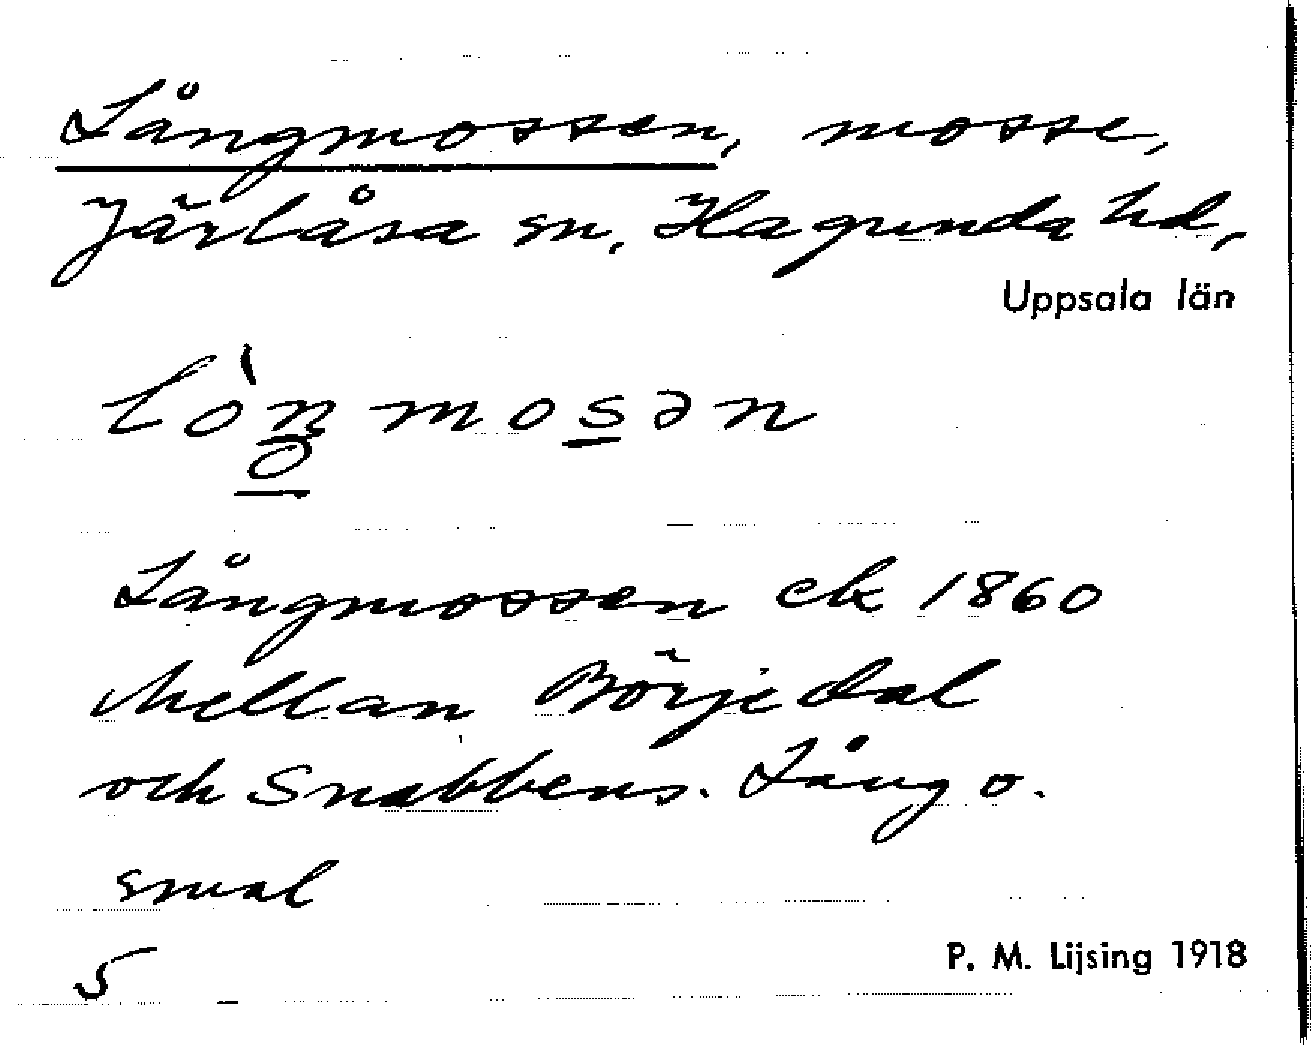 Långmossen, mosse,
Järlåsa sn, Hagunda hd,
Uppsala län
lò̱ŋmo̱s̱ən
Långmossen ek 1860
Mellan Börjedal
och Snabbens. Lång o.
smal
5
P. M. Lijsing 1918